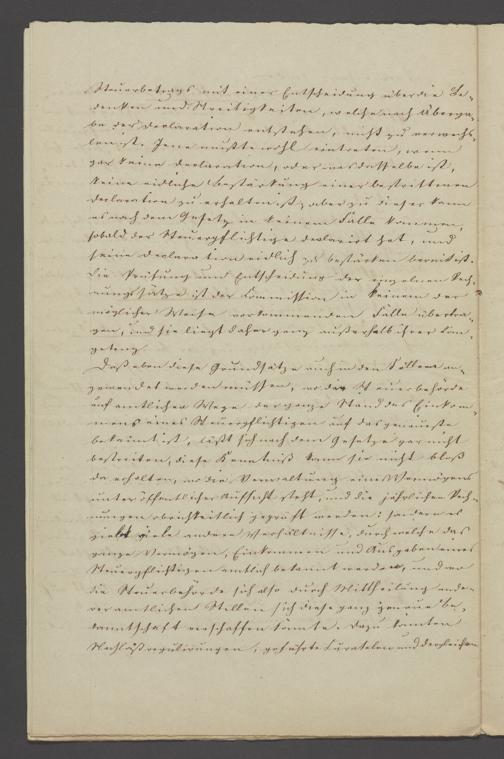 Steuerbetrags mit einer Entscheidung über die Be-
denken und Streitigkeiten, welche nach Überga-
be der Declaration entstehen, nicht zu verwechs-
len ist. Jene müßte wohl eintreten, wenn
gar keine Declaration, oder was dasselbe ist,
keine eidliche Bestärkung einer bestrittenen
Declaration zu erhalten ist, aber zu dieser kann
es nach dem Gesetz in keinem Falle kommen,
sobald der Steuerpflichtige declarirt hat, und
seine Declaration eidlich zu bestärken bereit ist.
Die Prüfung und Entscheidung der einzelnen Rech-
nungssätze ist der Commission in keinem der
möglicher Weise vorkommenden Fälle übertra-
gen, und sie liegt daher ganz außerhalb ihrer Com-
petenz.
Daß eben diese Grundsätze auch in den Fällen an-
gewendet werden müssen, wo der Steuerbehörde
auf amtlichem Wege der ganze Stand des Einkom-
mens eines Steuerpflichtigen auf das genaueste
bekannt ist, läßt sich nach dem Gesetze gar nicht
bestreiten, diese Kenntniß kann sie nicht bloß
da erhalten, wo die Verwaltung eines Vermögens
unter öffentlicher Aufsicht steht, und die jährlichen Rech-
nungen obrichkeitlich geprüft werden: sondern es
giebt viele andere Verhältnisse, durch welche das
ganze Vermögen, Einkommen und Ausgaben eines
Steuerpflichtigen amtlich bekannt werden, und wo
die Steuerbehörde sich also durch Mittheilung ande-
rer amtlichen Stellen sich diese ganz genaue Be-
kanntschaft verschaffen könnte. Dazu könnten
Nachlaßregulirungen, geführte Curatelen und dergleichen